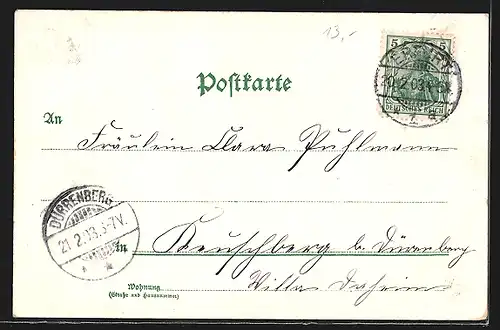 13,-
5 5
20.2.03
DEUTSCHES REICH
Postkarte
An
Fräulein Clara Puhlmann
DÜRRENBERG
21.2.03.5-7V.
in
Keuschberg b. Dürenberg
Wohnung
(Straße und Hausnummer)
Villa Daheim